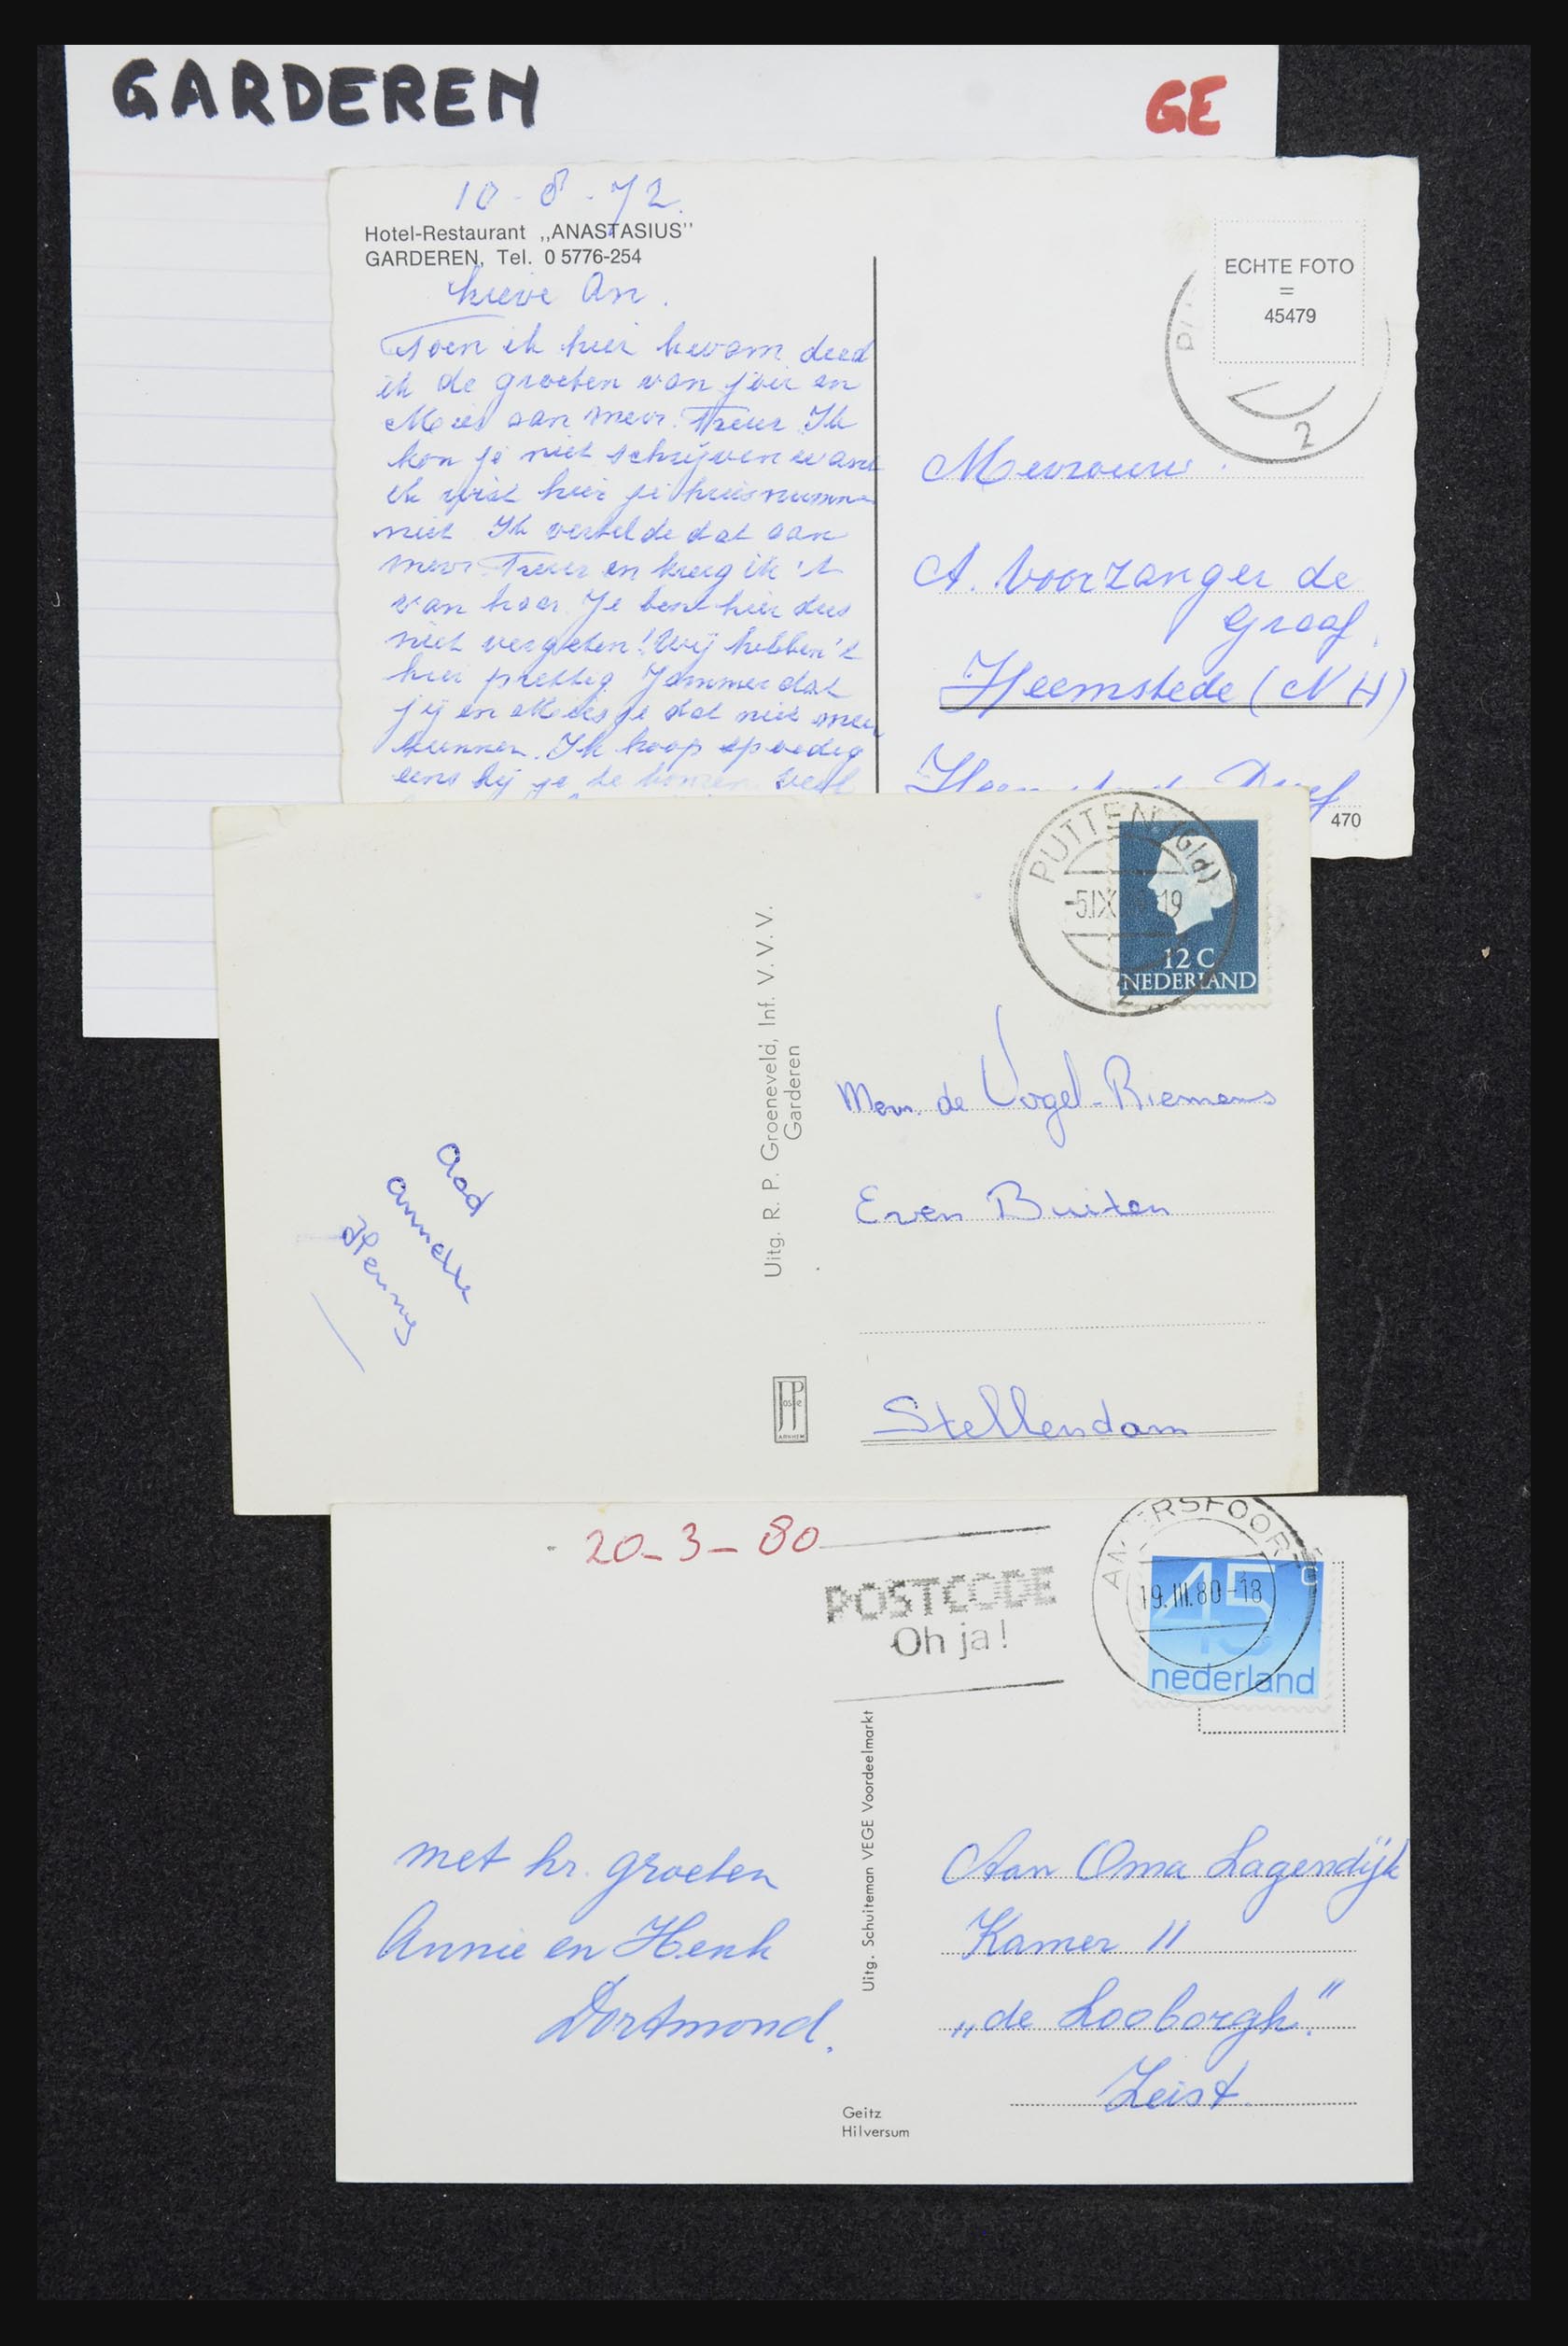 GARDEREN
GE
10-8-72.
Hotel-Restaurant „ANASTASIUS"
GARDEREN, Tel. 0 5776-254
Lieve An.
Toen ik hier kwam deed
ik de groeten van jou en
Mies aan mevr. Treur. Ik
kon je niet schrijven want
ik wist hier je huisnummer
niet. Ik vertelde dat aan
mevr. Treur en kreeg ik 't
van haar. Je bent hier dus
niet vergeten! Wij hebben 't
hier prettig. Jammer dat
jij en Miesje dat niet meer
kunnen. Ik hoop spoedig
eens bij je te komen. Veel
ECHTE FOTO
=
45479
2
Mevrouw
A. Voorzanger de
Graaf
Heemstede (NH)
470
PUTTEN (Gld)
-5.IX 19
2
12 C
NEDERLAND
Uitg. R. P. Groeneveld, Inf. V. V. V.
Garderen
Mevr. de Vogel-Riemens
Even Buiten
Stellendam
Aad
Annette
Henny
JP
osPe
ARNHEM
20-3-80
POSTCODE
Oh ja!
AMERSFOORT
19.III.80-18
45c
nederland
Uitg. Schuiteman VEGE Voordeelmarkt
met hr. groeten
Annie en Henk
Dortmond.
Aan Oma Lagendijk
Kamer 11
„de Looborgh."
Zeist
Geitz
Hilversum